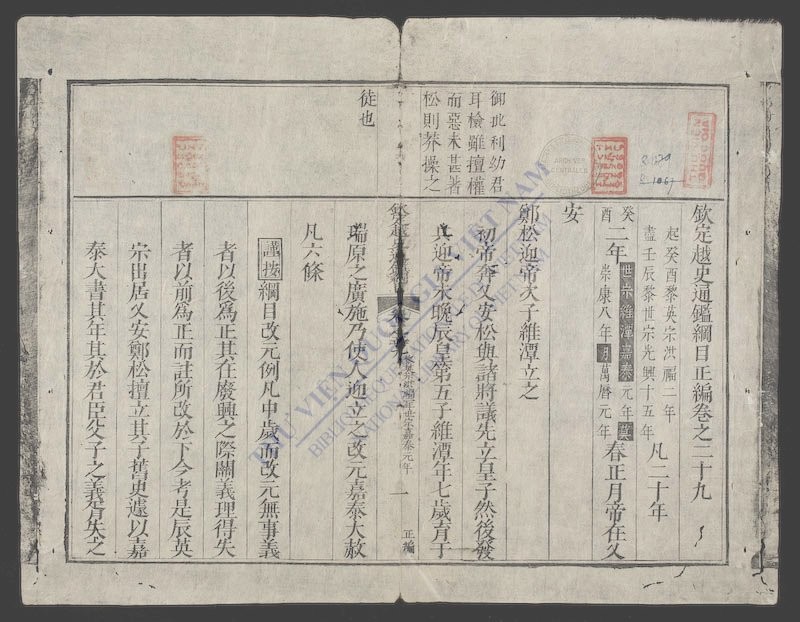 欽定越史通鑑綱目正編卷之二十九
起癸酉黎英宗洪福二年
盡壬辰黎世宗光興十五年
凡二十年
癸酉
二年
世宗維潭嘉泰元年莫
崇康八年明萬曆元年
春正月帝在乂
安
鄭松迎帝次子維潭立之
初帝奔乂安松與諸將議先立皇子然後發
兵迎帝未晚辰皇第五子維潭年七歲育于
欽定越史通鑑綱目
卷之二十九
世宗嘉泰元年
一
正編
瑞原之廣施乃使人迎立之改元嘉泰大赦
凡六條
謹按綱目改元例凡中歲而改元無事義
者以後爲正其在廢興之際關義理得失
者以前爲正而註所改於下今考是辰英
宗出居乂安鄭松擅立其子舊史遽以嘉
泰大書其年其於君臣父子之義胥失之
御批利幼君
耳檢雖擅權
而惡未甚著
松則莽操之
徒也
THƯ VIỆN QUỐC GIA VIỆT NAM
BIBLIOTHEQUE NATIONALE DU VIETNAM
NATIONAL LIBRARY OF VIETNAM
ARCHIVES
CENTRALES